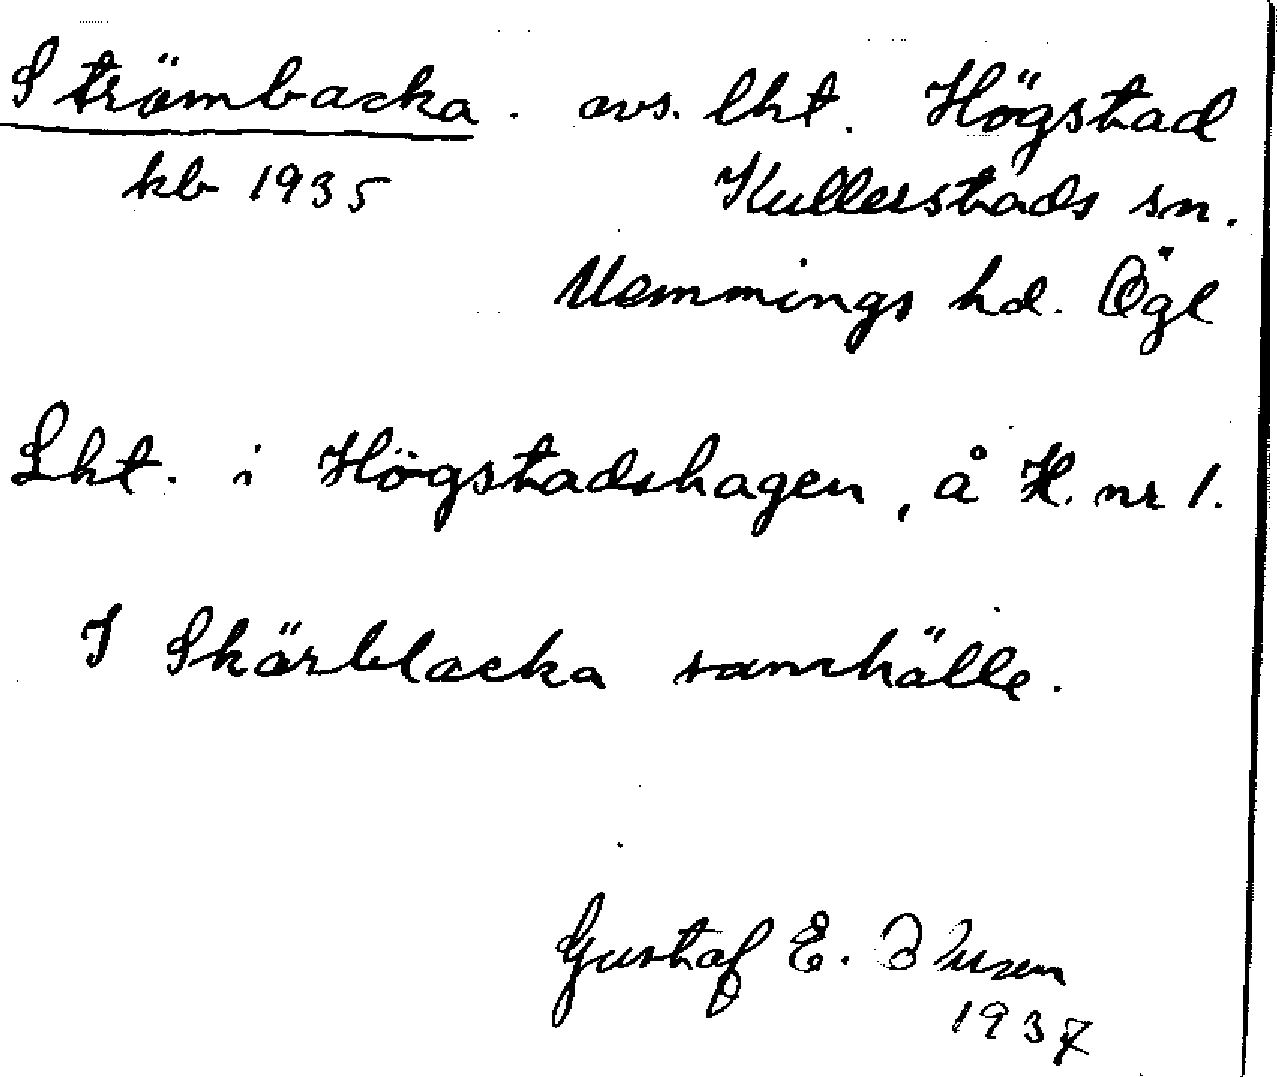 Strömbacka. avs. lht. Högstad
kb 1935 Kullerstads sn.
Memmings hd. Ögl
Lht. i Högstadshagen, å H. nr 1.
I Skärblacka samhälle.
Gustaf E.
1937